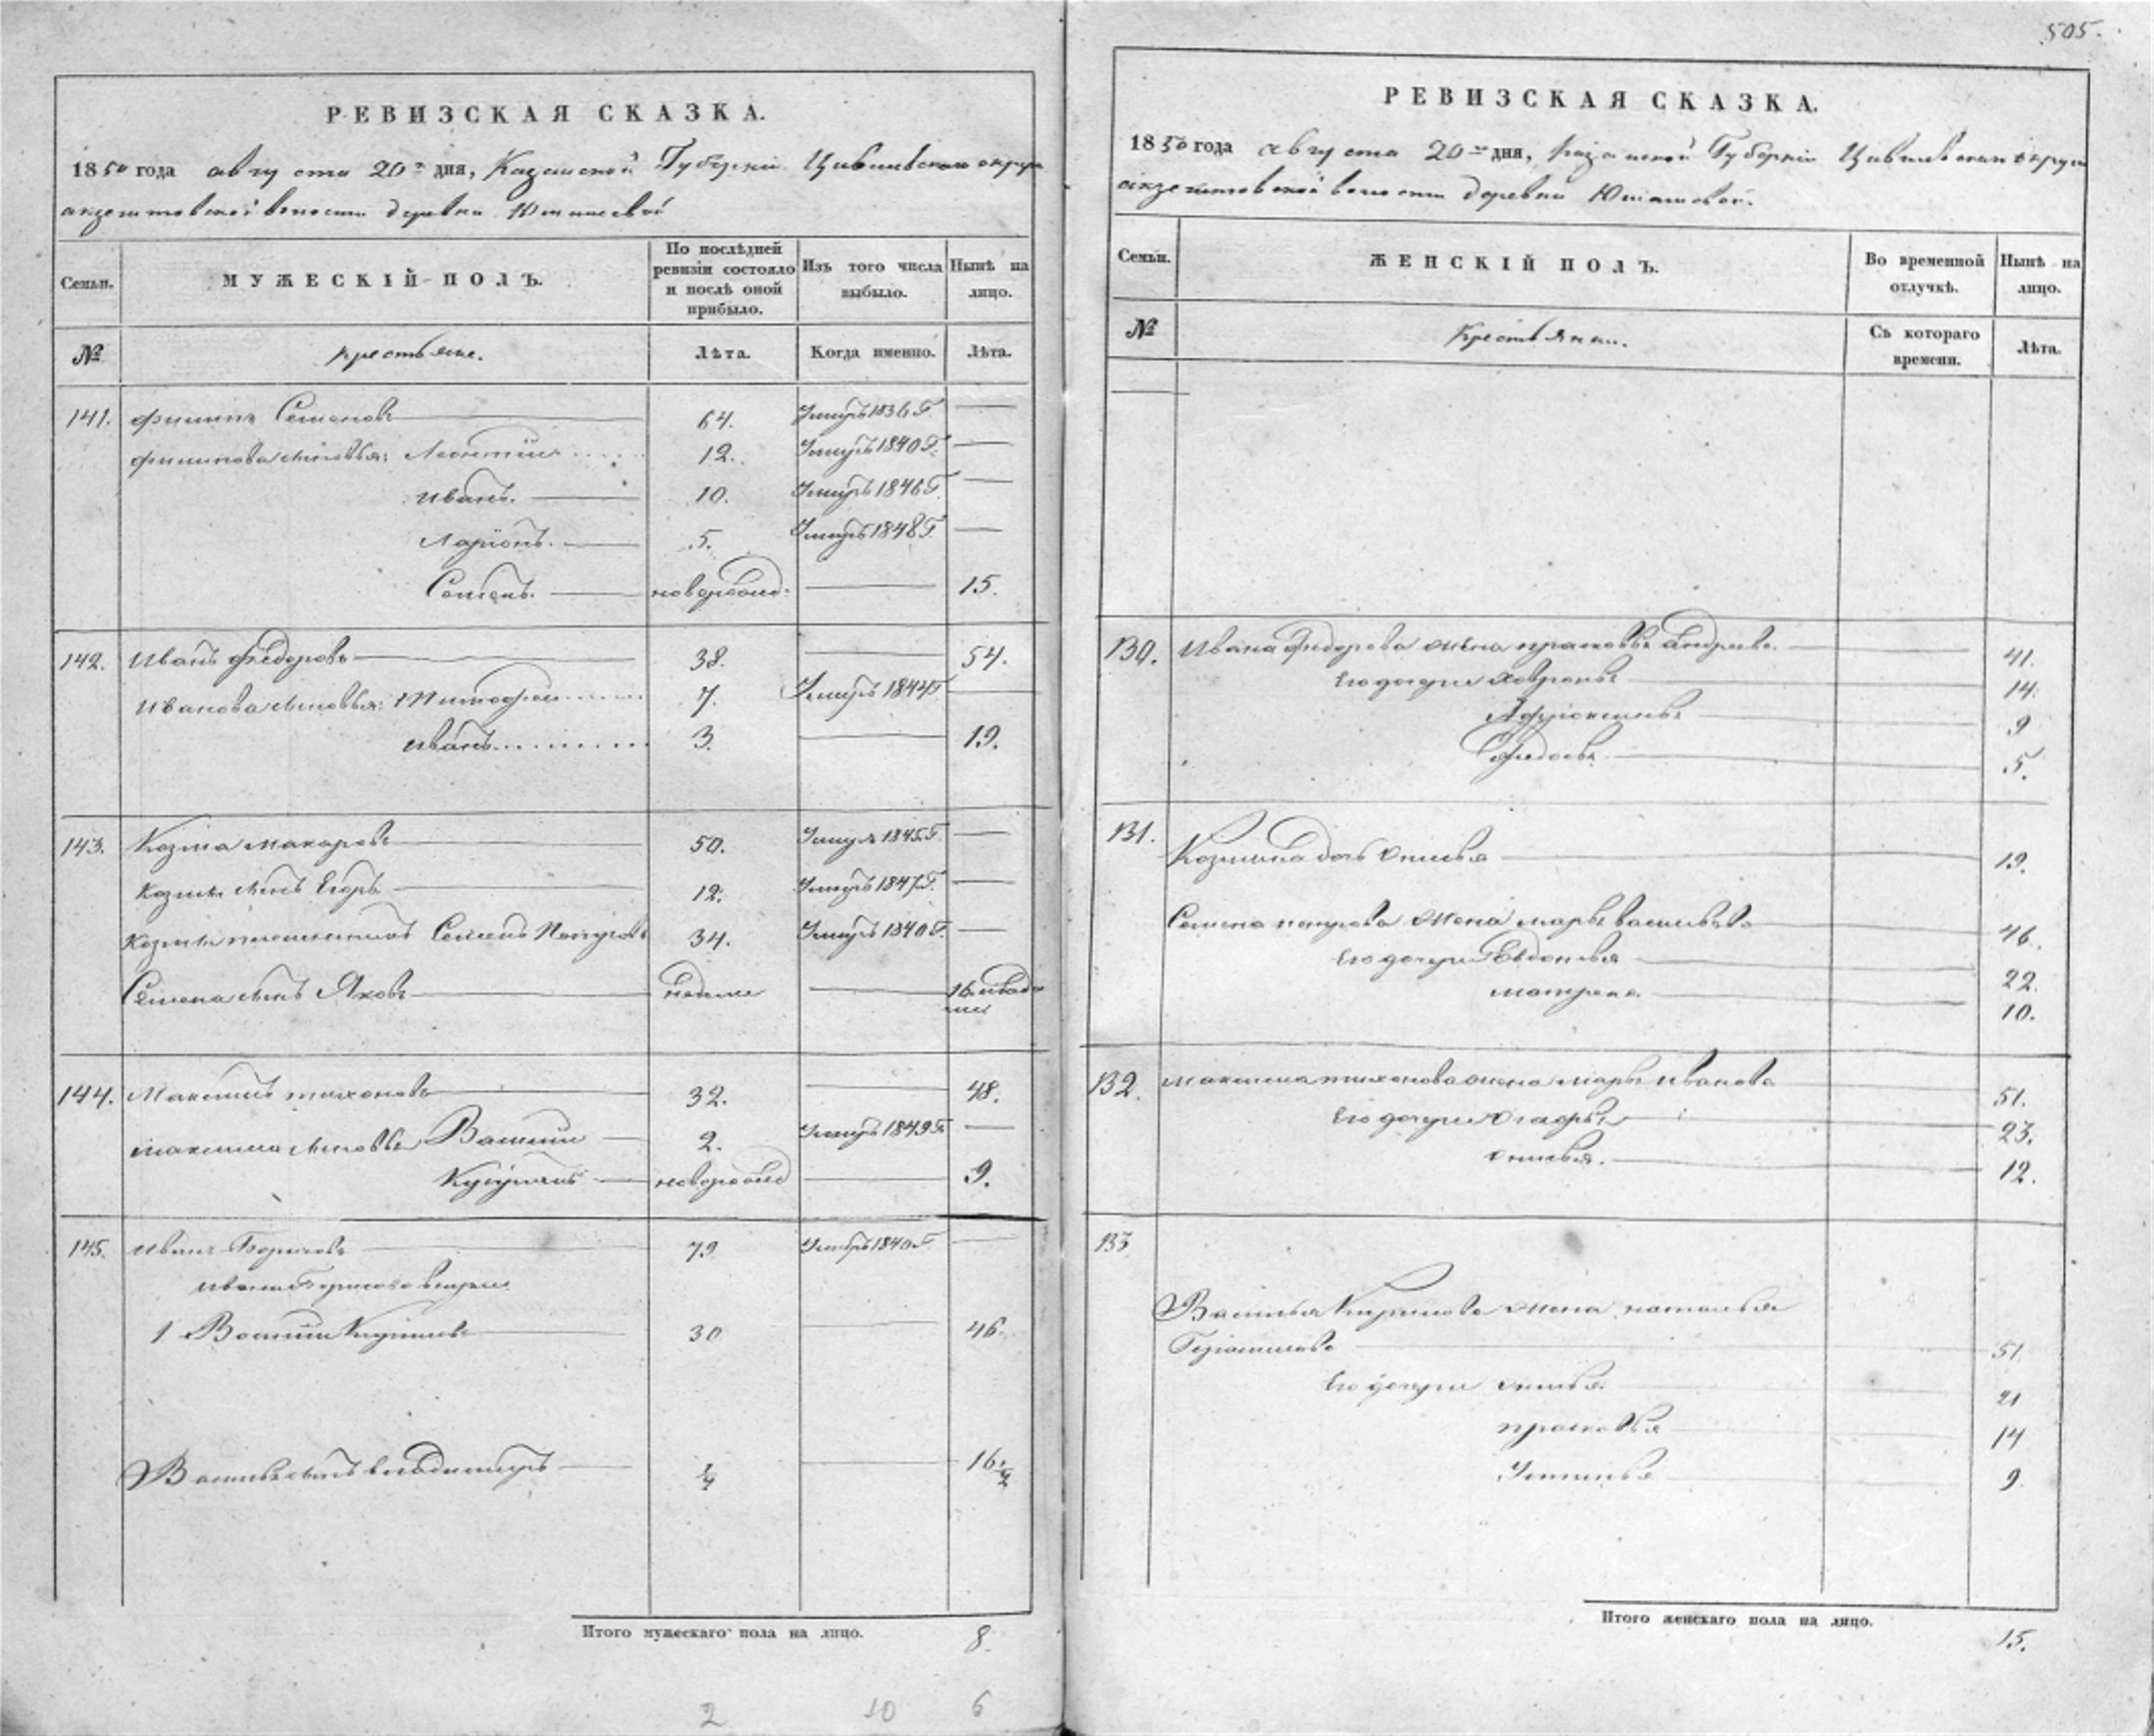 505.
РЕВИЗСКАЯ СКАЗКА.
1850 года августа 20го дня, Казанской Губерніи Цивильскаго округа
волости деревни
Семьи.
МУЖЕСКІЙ ПОЛЪ.
По послѣдней ревизіи состояло и послѣ оной прибыло.
Изъ того числа выбыло.
Нынѣ на лицо.
№
крестьяне.
Лѣта.
Когда именно.
Лѣта.
141. Филипъ Семеновъ 64. Умеръ 1836 Г.
Филипова сыновья: Леонтій 12. Умеръ 1840 Г.
Иванъ. 10. Умеръ 1846 Г.
Ларіонъ. 5. Умеръ 1848 Г.
Семенъ. новорожд: 15.
142. Иванъ Федоровъ 38. 54.
Иванова сыновья: Тимофей 7. Умеръ 1844 Г
Иванъ 3. 19.
143. Козма Макаровъ 50. Умеръ 1845 Г.
Козмы сынъ Егоръ 12. Умеръ 1847 Г.
Козмы племянникъ Семенъ Петровъ 34. Умеръ 1840 Г.
Семена сынъ Яковъ 16
144. Максимъ Тихоновъ 32. 48.
Максима сыновья Василій 2. Умеръ 1849 Г
новорожд 9.
145. Иванъ Борисовъ 79 Умеръ 1840 Г
Ивана Борисова внуки
1 Василій Кириловъ 30 46.
Василья сынъ Владимиръ 1/4 16 1/2
Итого мужескаго пола на лицо. 8.
2 10 6
РЕВИЗСКАЯ СКАЗКА.
1850 года августа 20го дня, Казанской Губерніи Цивильскаго округа
волости деревни
Семьи.
ЖЕНСКІЙ ПОЛЪ.
Во временной отлучкѣ.
Нынѣ на лицо.
№
Крестьянки.
Съ котораго времени.
Лѣта.
130. Ивана Федорова жена Прасковья Андреева. 41.
Его дочери Февронья 14.
9
Федосья 5.
131. Козмина дочь Анисья 19.
Семена Петрова жена Марья Васильева 46.
Его дочери Евдокья 22.
Матрена 10.
132. Максима Тихонова жена Марья Иванова 51.
Его дочери Агафья 23.
Анисья. 12.
133
Василья Кирилова жена Наталья
Герасимова 51
Его дочери Анисья 21
Прасковья 14
Устинья 9
Итого женскаго пола на лицо. 15.